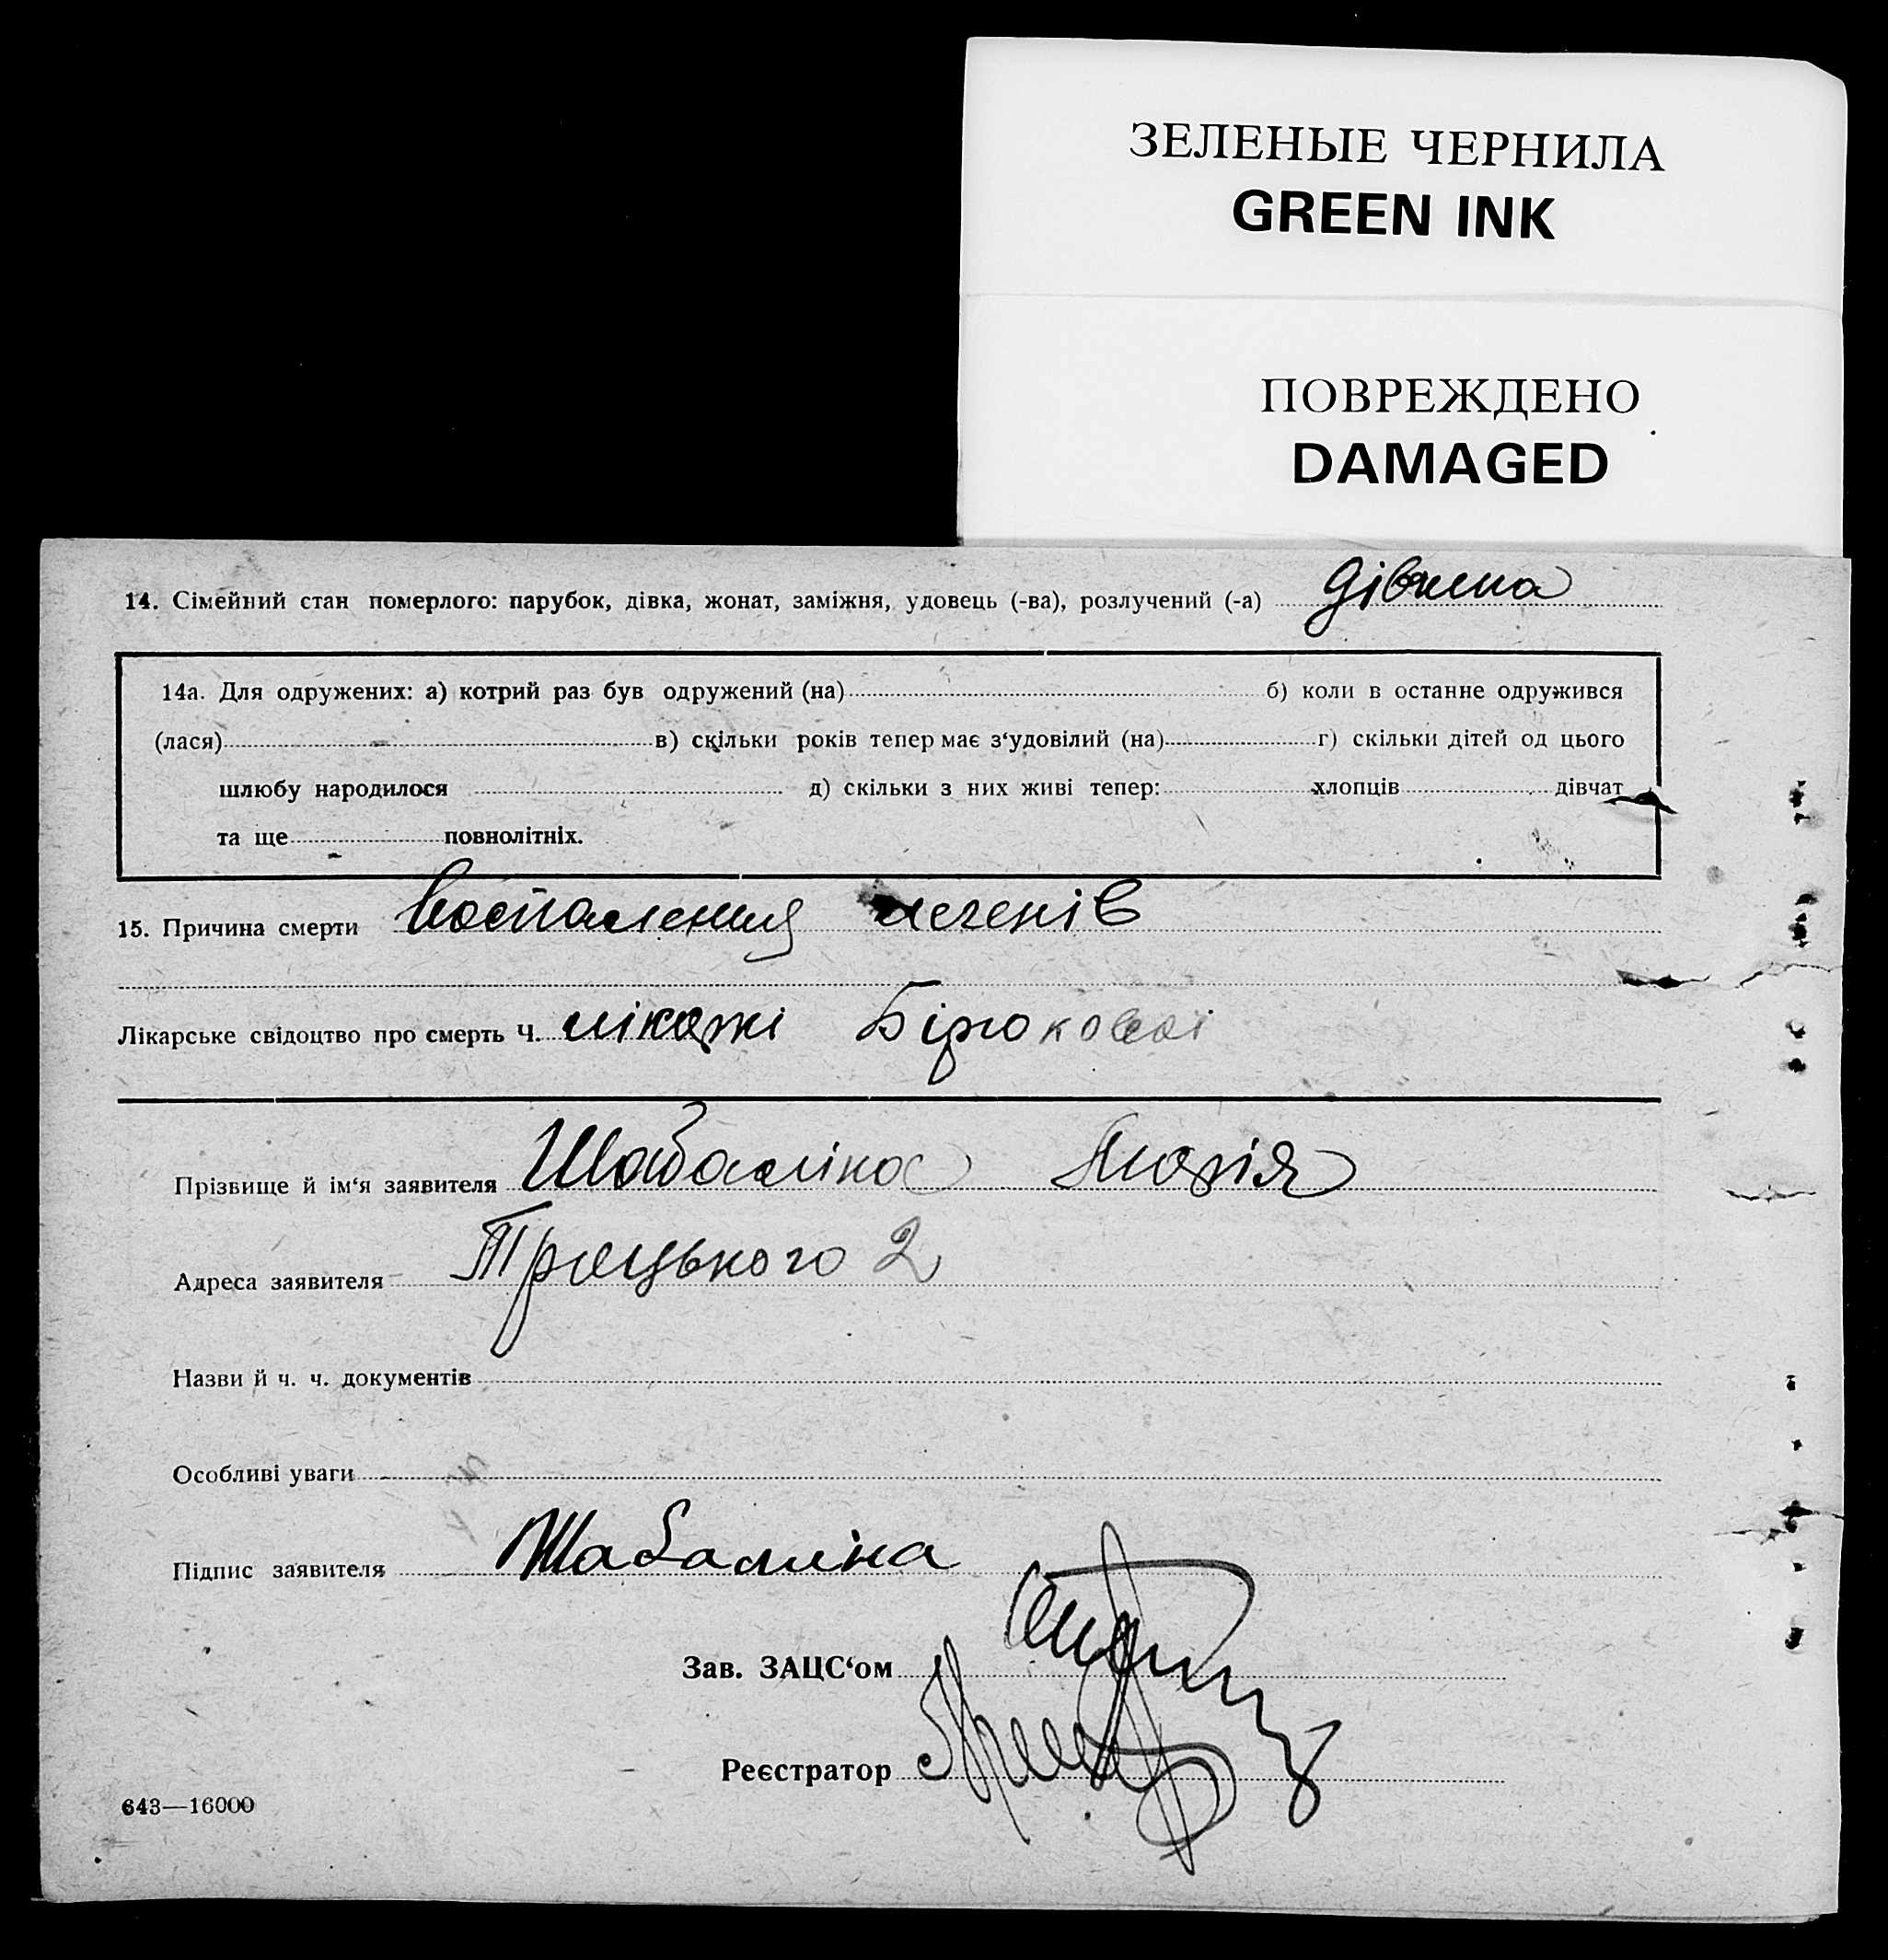 ЗЕЛЕНЫЕ ЧЕРНИЛА
GREEN INK
ПОВРЕЖДЕНО
DAMAGED
14. Сімейний стан померлого: парубок, дівка, жонат, заміжня, удовець (-ва), розлучений (-а) дівчина
14а. Для одружених: а) котрий раз був одружений (на) б) коли в останнє одружився
(лася) в) скільки років тепер має з‘удовілий (на) г) скільки дітей од цього
шлюбу народилося д) скільки з них живі тепер: хлопців дівчат
та ще повнолітніх.
15. Причина смерти воспаления легенів
Лікарське свідоцтво про смерть Ч. лікаркі Бірюковоі
Прізвище й ім‘я заявителя Шабаліна Марія
Адреса заявителя Троцького 2
Назви й ч. ч. документів
Особливі уваги
Підпис заявителя Шабаліна
Зав. ЗАЦС‘ом
Реєстратор
643—16000